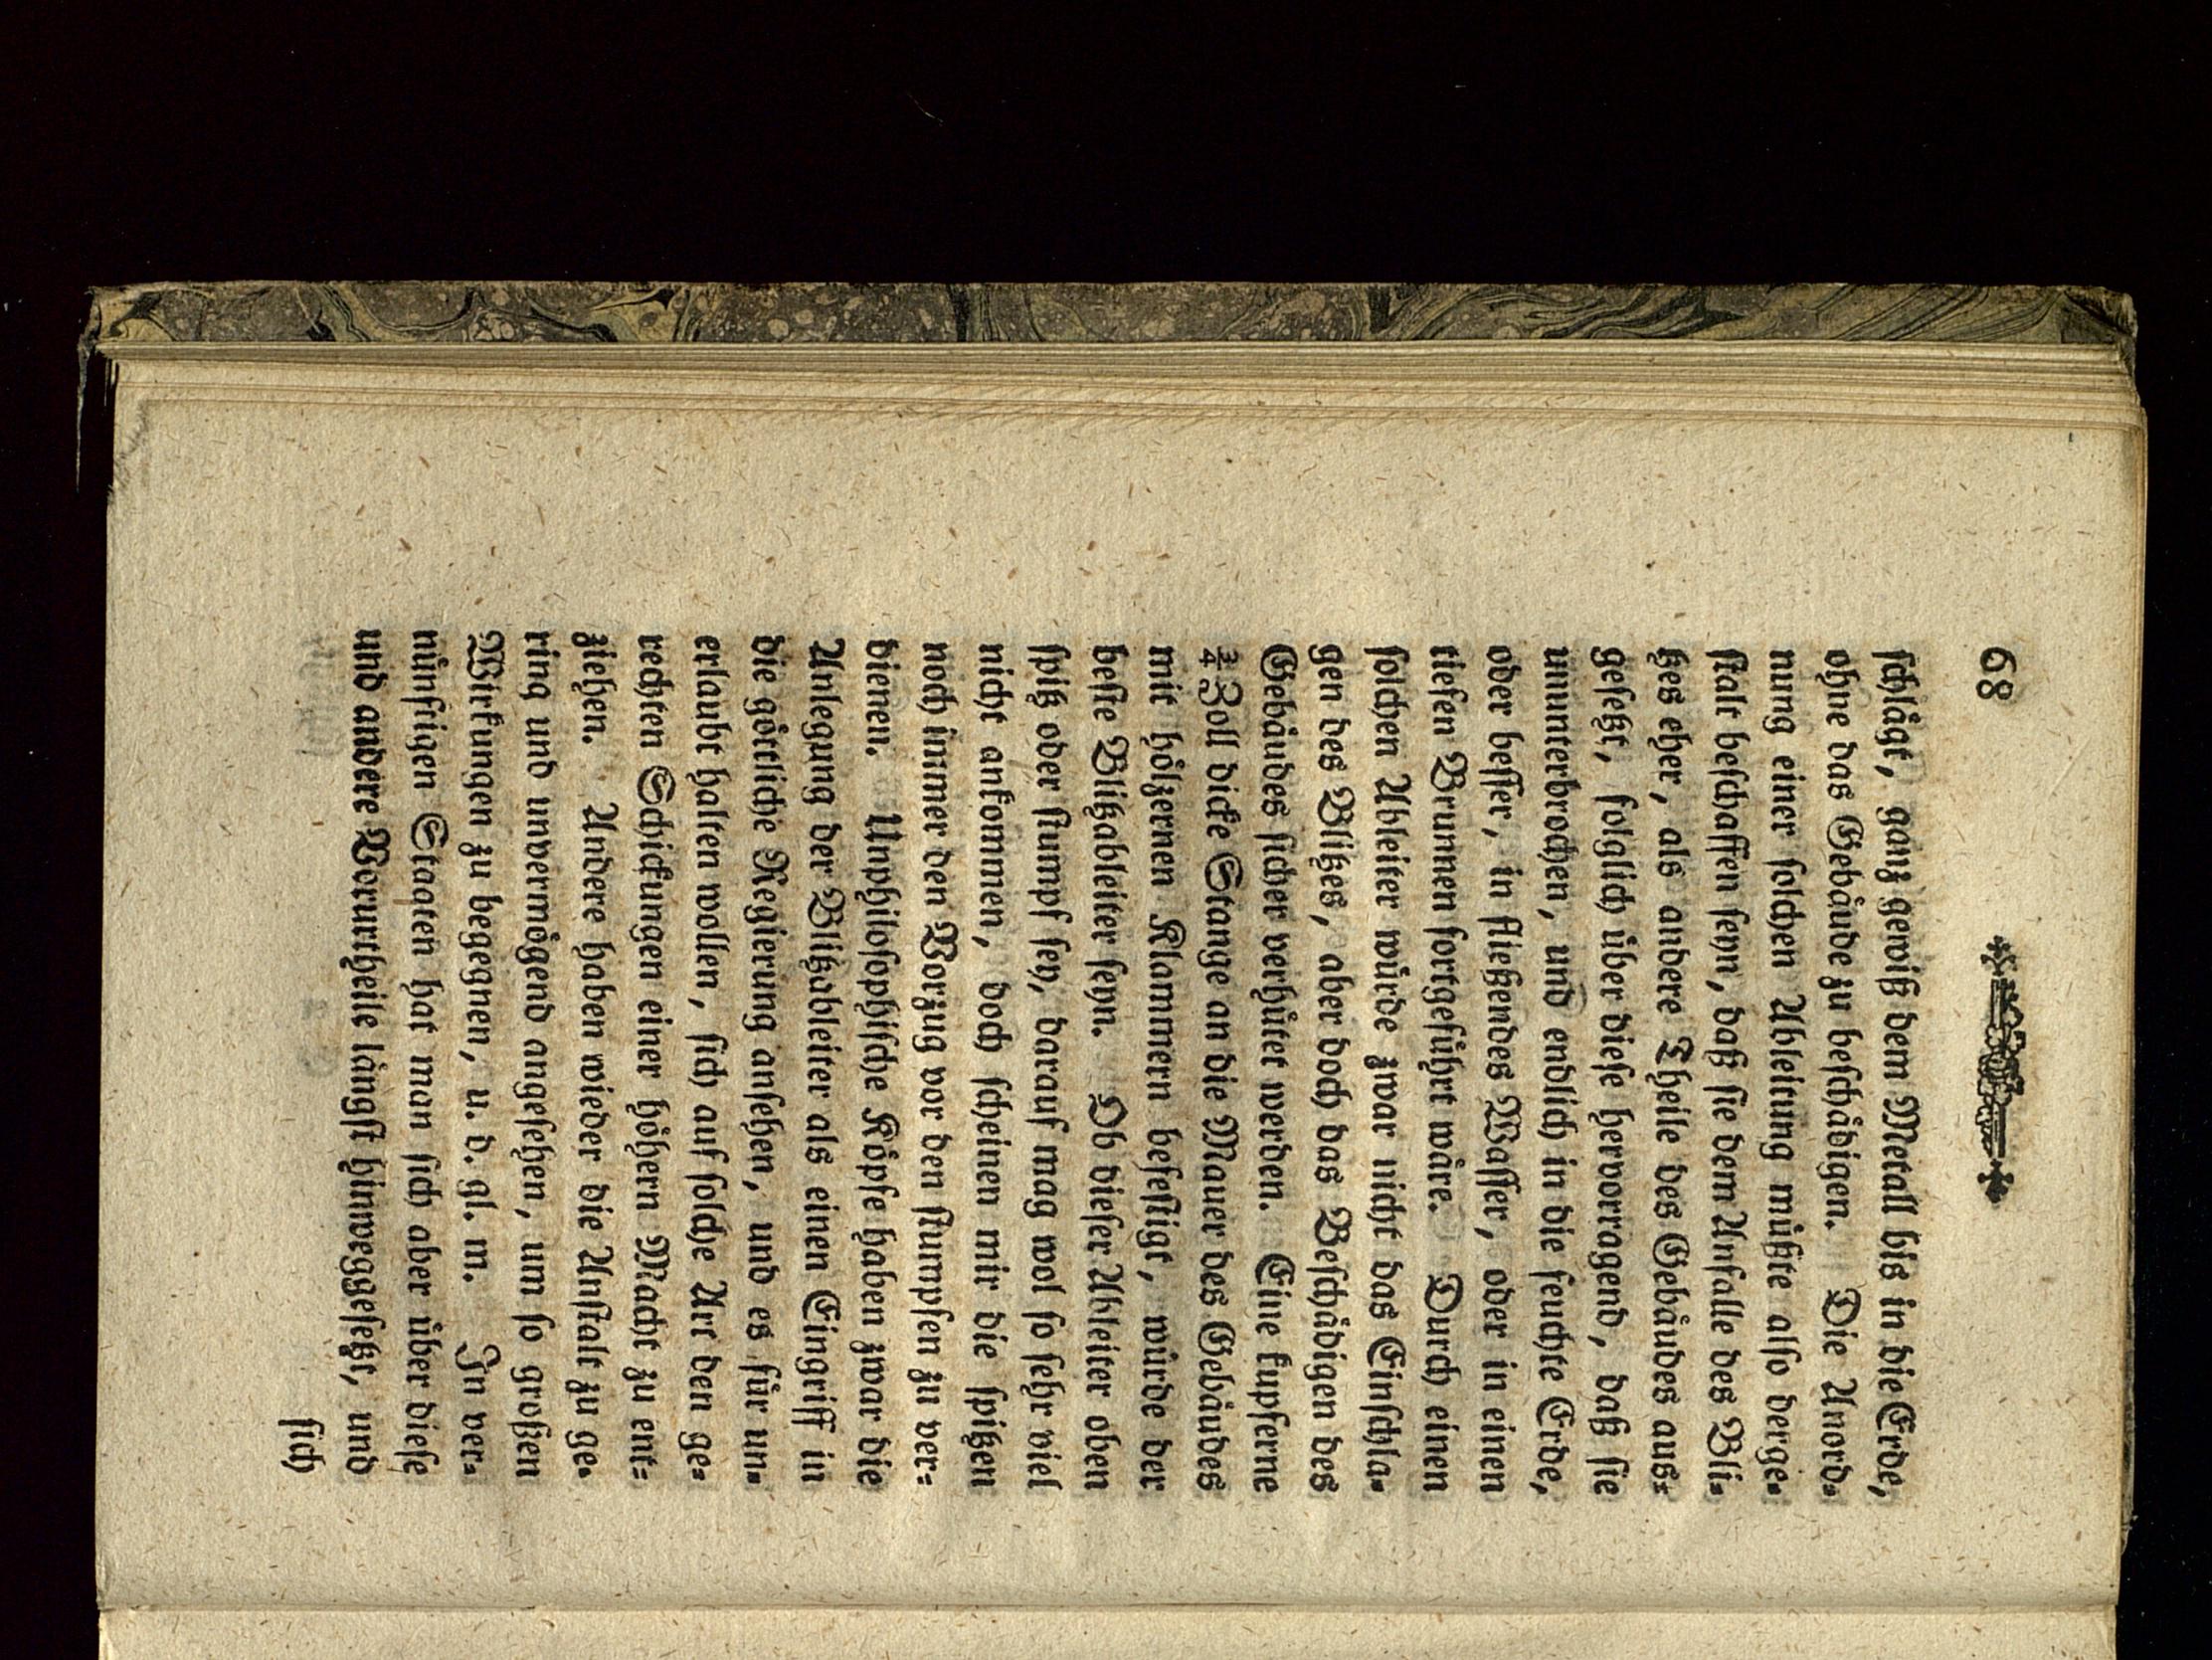 68
ſchlägt, ganz gewiß dem Metall bis in die Erde,
ohne das Gebäude zu beſchädigen. Die Anord-
nung einer ſolchen Ableitung müßte alſo derge-
ſtalt beſchaffen ſeyn, daß ſie dem Anfalle des Bli-
tzes eher, als andere Theile des Gebäudes aus-
geſetzt, folglich über dieſe hervorragend, daß ſie
ununterbrochen, und endlich in die feuchte Erde,
oder beſſer, in fließendes Waſſer, oder in einen
tiefen Brunnen fortgeführt wäre. Durch einen
ſolchen Ableiter würde zwar nicht das Einſchla-
gen des Blitzes, aber doch das Beſchädigen des
Gebäudes ſicher verhütet werden. Eine kupferne
¾ Zoll dicke Stange an die Mauer des Gebäudes
mit hölzernen Klammern befeſtigt, würde der
beſte Blitzableiter ſeyn. Ob dieſer Ableiter oben
ſpitz oder ſtumpf ſey, darauf mag wol ſo ſehr viel
nicht ankommen, doch ſcheinen mir die ſpitzen
noch immer den Vorzug vor den ſtumpfen zu ver-
dienen. Unphiloſophiſche Köpfe haben zwar die
Anlegung der Blitzableiter als einen Eingriff in
die göttliche Regierung anſehen, und es für un-
erlaubt halten wollen, ſich auf ſolche Art den ge-
rechten Schickungen einer höhern Macht zu ent-
ziehen. Andere haben wieder die Anſtalt zu ge-
ring und unvermögend angeſehen, um ſo großen
Wirkungen zu begegnen, u. d. gl. m. In ver-
nünftigen Staaten hat man ſich aber über dieſe
und andere Vorurtheile längſt hinweggeſetzt, und
ſich